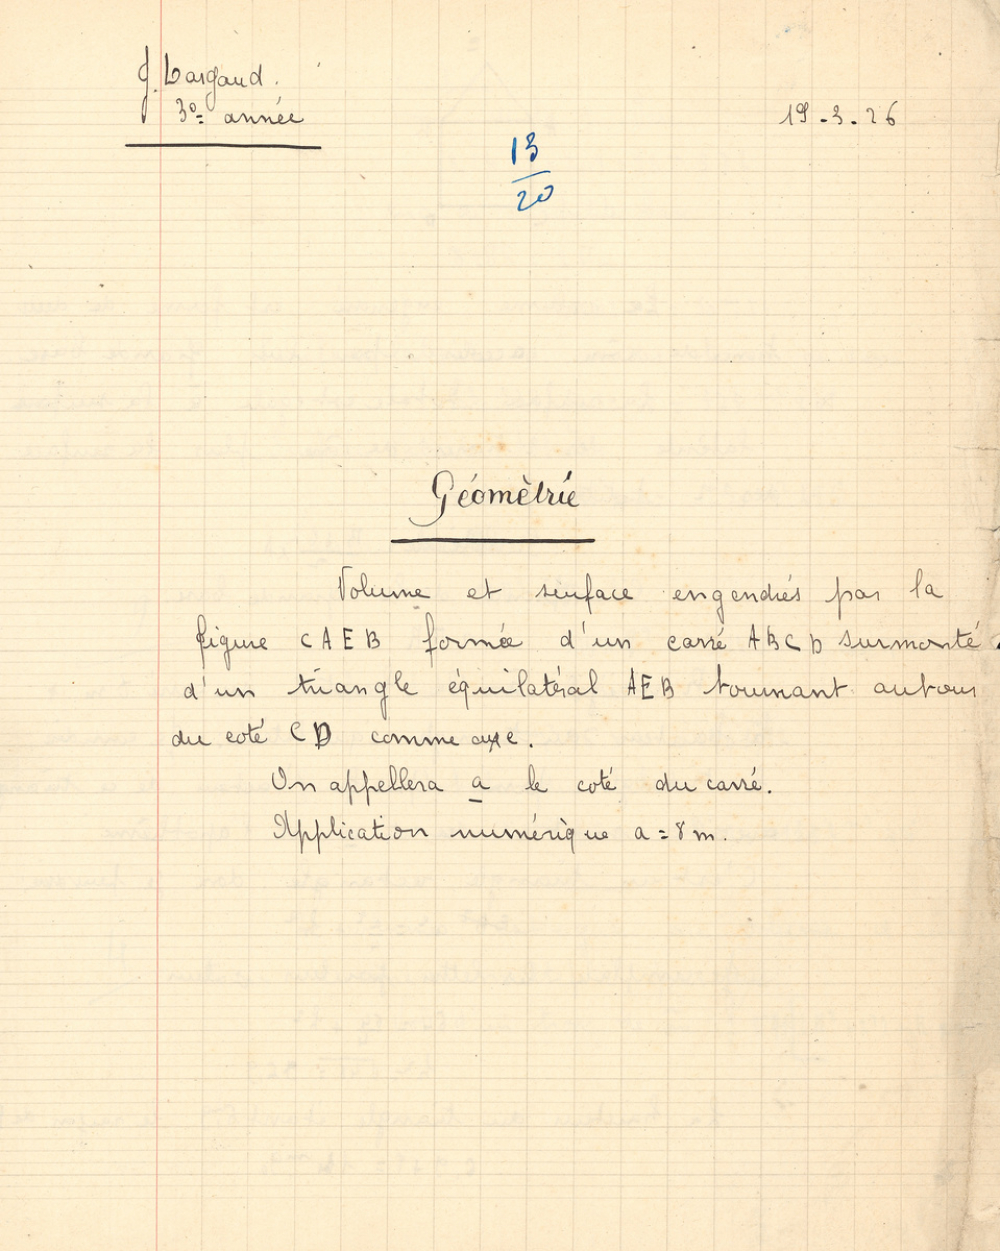 J. Largaud.
3e année
19-3-26
13
20
Géomètrie
Volume et surface engendrés par la
figure CAEB formée d'un carré ABCD surmonté
d'un triangle équilatéral AEB tournant autour
du coté CD comme axe.
On appellera a le coté du carré.
Application numérique a = 8 m.